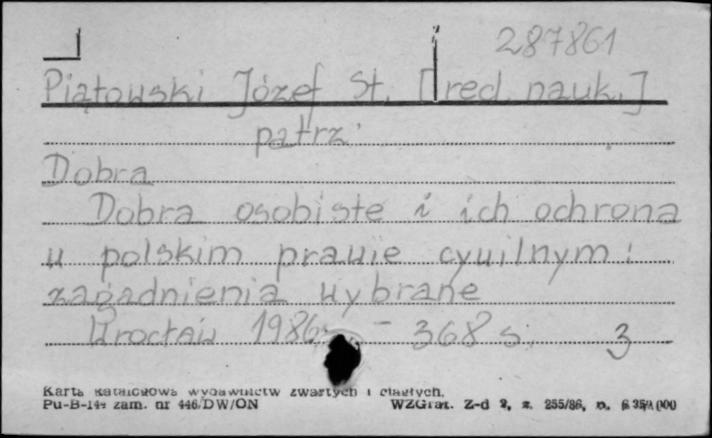 287861
Piątowski Józef St. [red. nauk.]
patrz
Dobra
Dobra osobiste i ich ochrona
w polskim prawie cywilnym :
zagadnienia wybrane
Wrocław 1986. - 368 s. 3
Karta katalogowa wydawnictw zwartych i ciągłych.
Pu-B-144 zam. nr 446/DW/ON WZGraf. Z-d 2, z. 255/86, n.